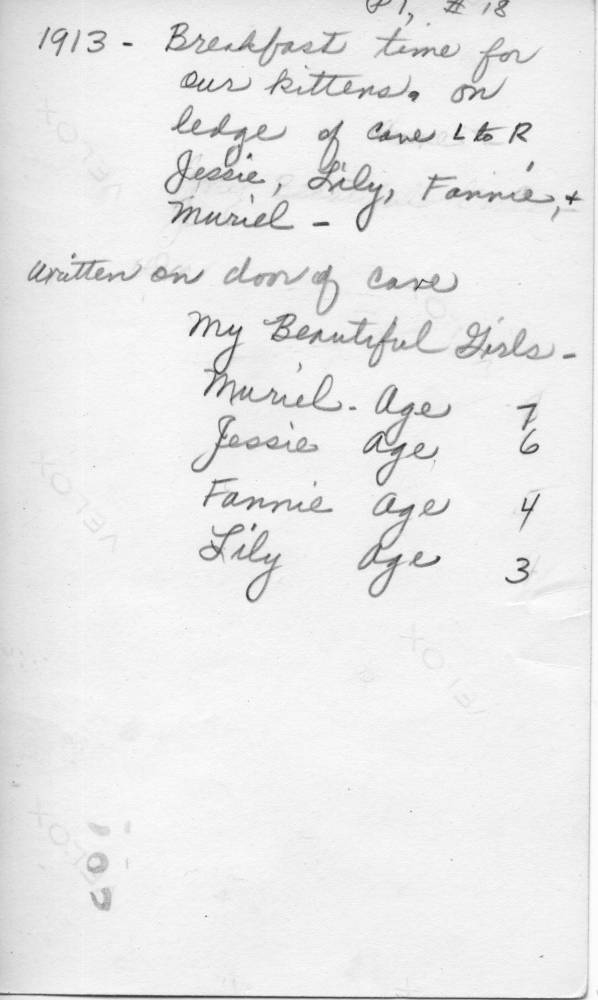 P1, # 18
1913 - Breakfast time for
our kittens. on
ledge of cave L to R
Jessie, Lily, Fannie, +
Muriel -
written on door of cave
My Beautiful Girls -
Muriel - Age 7
Jessie age 6
Fannie age 4
Lily age 3
VELOX
VELOX
VELOX
VELOX